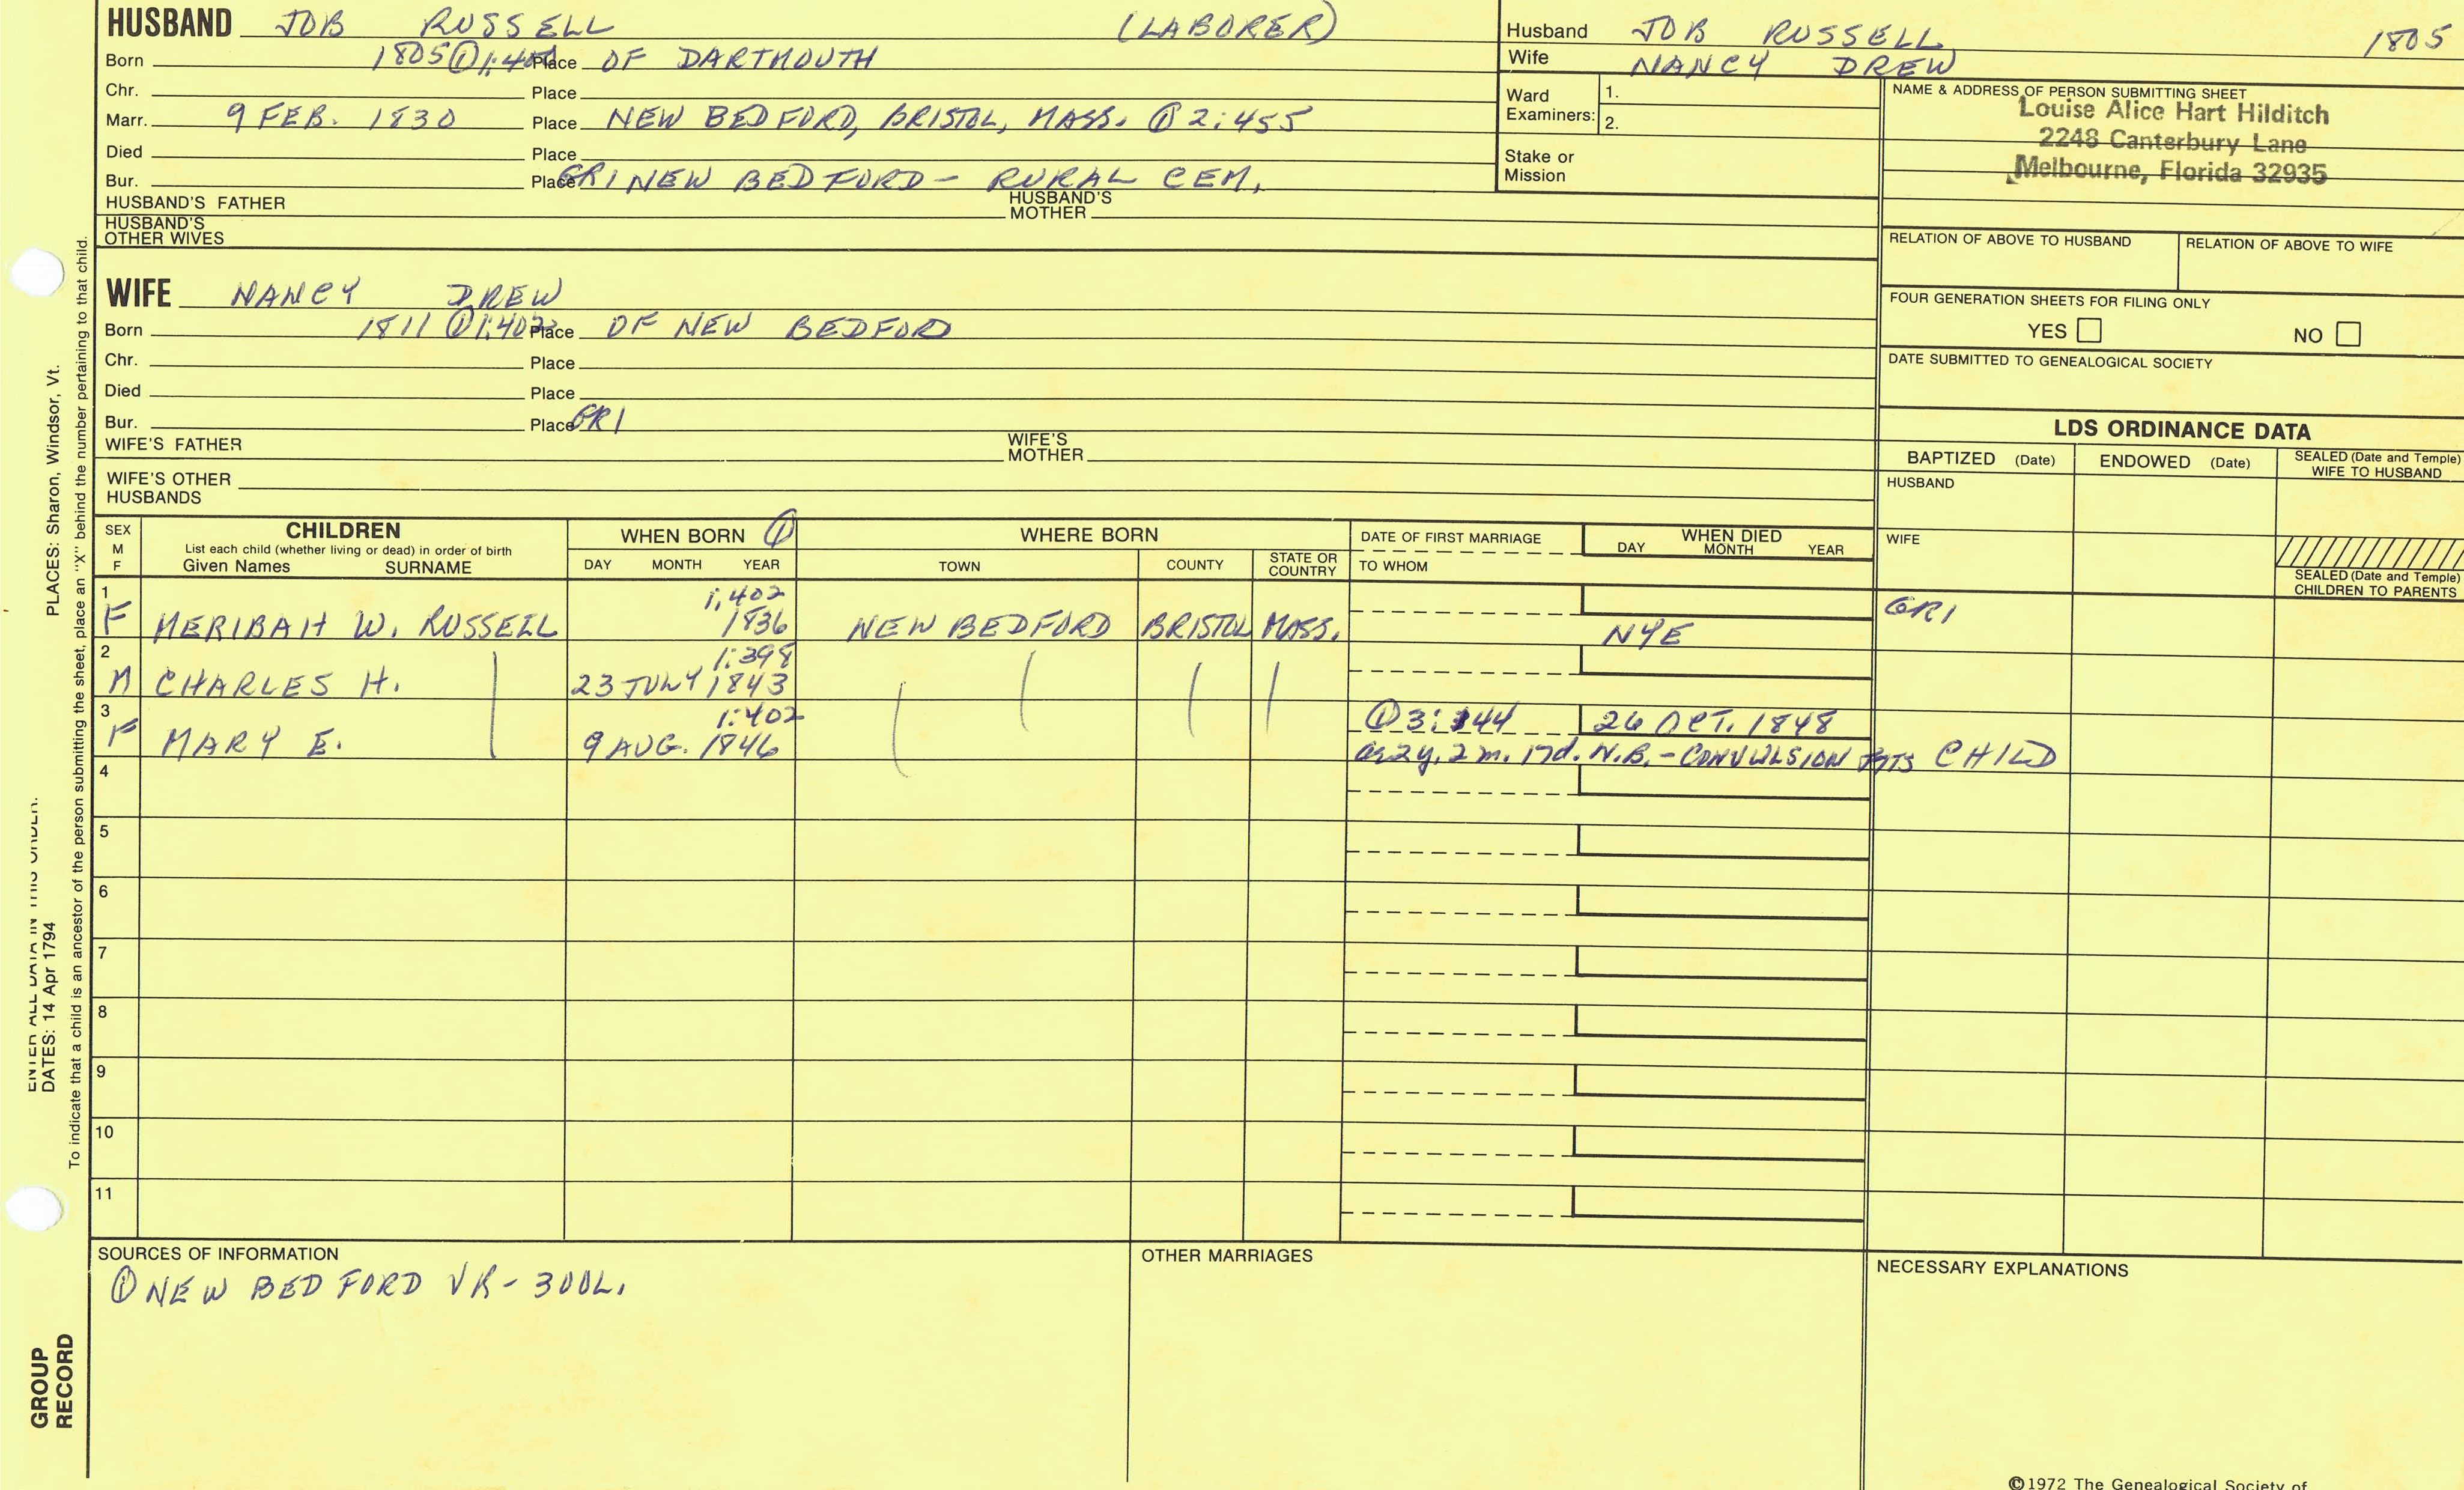 HUSBAND JOB RUSSELL (LABORER)
Born 1805 ① Place OF DARTMOUTH
Chr. Place
Marr. 9 FEB. 1830 Place NEW BEDFORD, BRISTOL, MASS. ① 2:455
Died Place
Bur. Place GRI NEW BEDFORD - RURAL CEM.
HUSBAND'S FATHER HUSBAND'S MOTHER
HUSBAND'S OTHER WIVES
Husband JOB RUSSELL 1805
Wife NANCY DREW
Ward Examiners: 1.
2.
Stake or Mission
NAME & ADDRESS OF PERSON SUBMITTING SHEET
Louise Alice Hart Hilditch
2248 Canterbury Lane
Melbourne, Florida 32935
RELATION OF ABOVE TO HUSBAND RELATION OF ABOVE TO WIFE
FOUR GENERATION SHEETS FOR FILING ONLY
YES NO
DATE SUBMITTED TO GENEALOGICAL SOCIETY
WIFE NANCY DREW
Born 1811 ① 1:402 Place OF NEW BEDFORD
Chr. Place
Died Place
Bur. Place GRI
WIFE'S FATHER WIFE'S MOTHER
WIFE'S OTHER HUSBANDS
LDS ORDINANCE DATA
BAPTIZED (Date) ENDOWED (Date) SEALED (Date and Temple) WIFE TO HUSBAND
HUSBAND
WIFE
SEALED (Date and Temple) CHILDREN TO PARENTS
SEX M F
CHILDREN
List each child (whether living or dead) in order of birth
Given Names SURNAME
WHEN BORN ①
DAY MONTH YEAR
WHERE BORN
TOWN COUNTY STATE OR COUNTRY
DATE OF FIRST MARRIAGE
TO WHOM
WHEN DIED
DAY MONTH YEAR
1 1:402
F MERIBAH W. RUSSELL 1836 NEW BEDFORD BRISTOL MASS. NYE GRI
2 1:398
M CHARLES H. 23 JULY 1843
3 1:402 ① 3:144 26 OCT. 1848
F MARY E. 9 AUG. 1846 2y. 2m. 17d. N.B. - CONVULSION FITS CHILD
4
5
6
7
8
9
10
11
SOURCES OF INFORMATION
① NEW BEDFORD VR - 300L.
OTHER MARRIAGES
NECESSARY EXPLANATIONS
©1972 The Genealogical Society of
ENTER ALL DATA IN THIS ORDER.
DATES: 14 Apr 1794 PLACES: Sharon, Windsor, Vt.
To indicate that a child is an ancestor of the person submitting the sheet, place an "X" behind the number pertaining to that child.
GROUP
RECORD